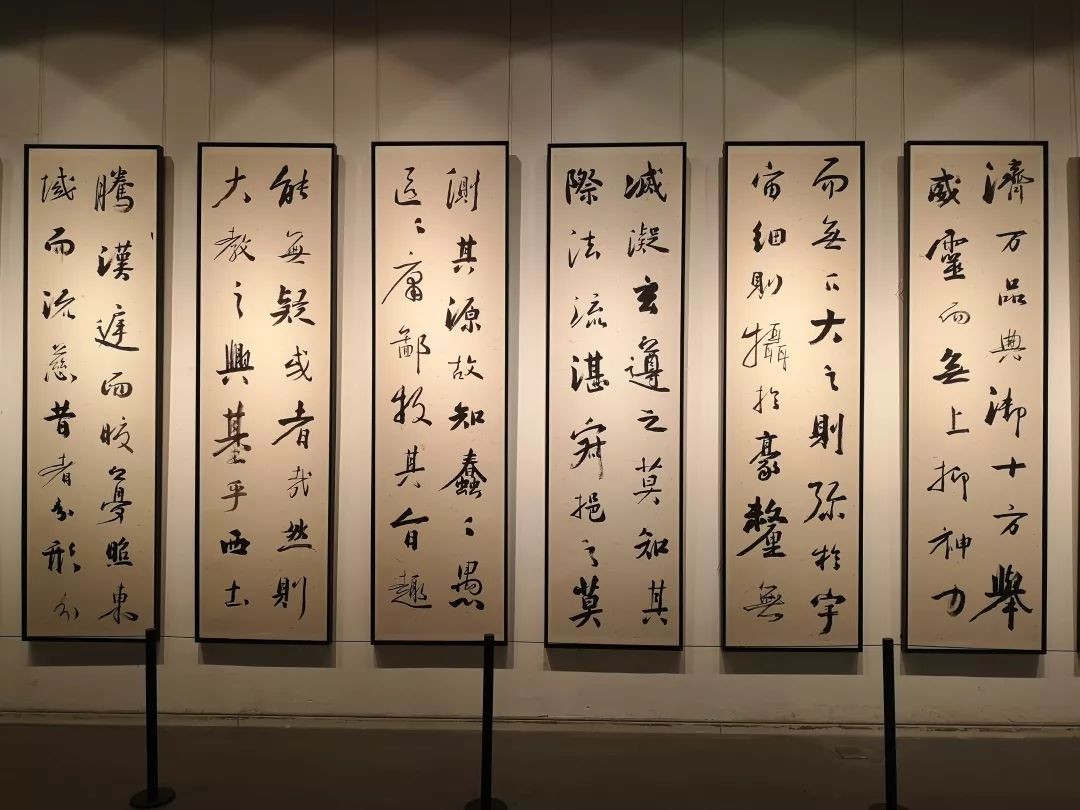 濟万品典御十方舉
威靈而無上抑神力
而無下大之則弥於宇
宙細則攝於豪釐無
滅凝玄遵之莫知其
際法流湛寂挹之莫
測其源故知蠢〻愚
區〻庸鄙投其旨趣
能無疑或者哉然則
大教之興基乎西土
騰漢庭而皎夢照東
域而流慈昔者分形分